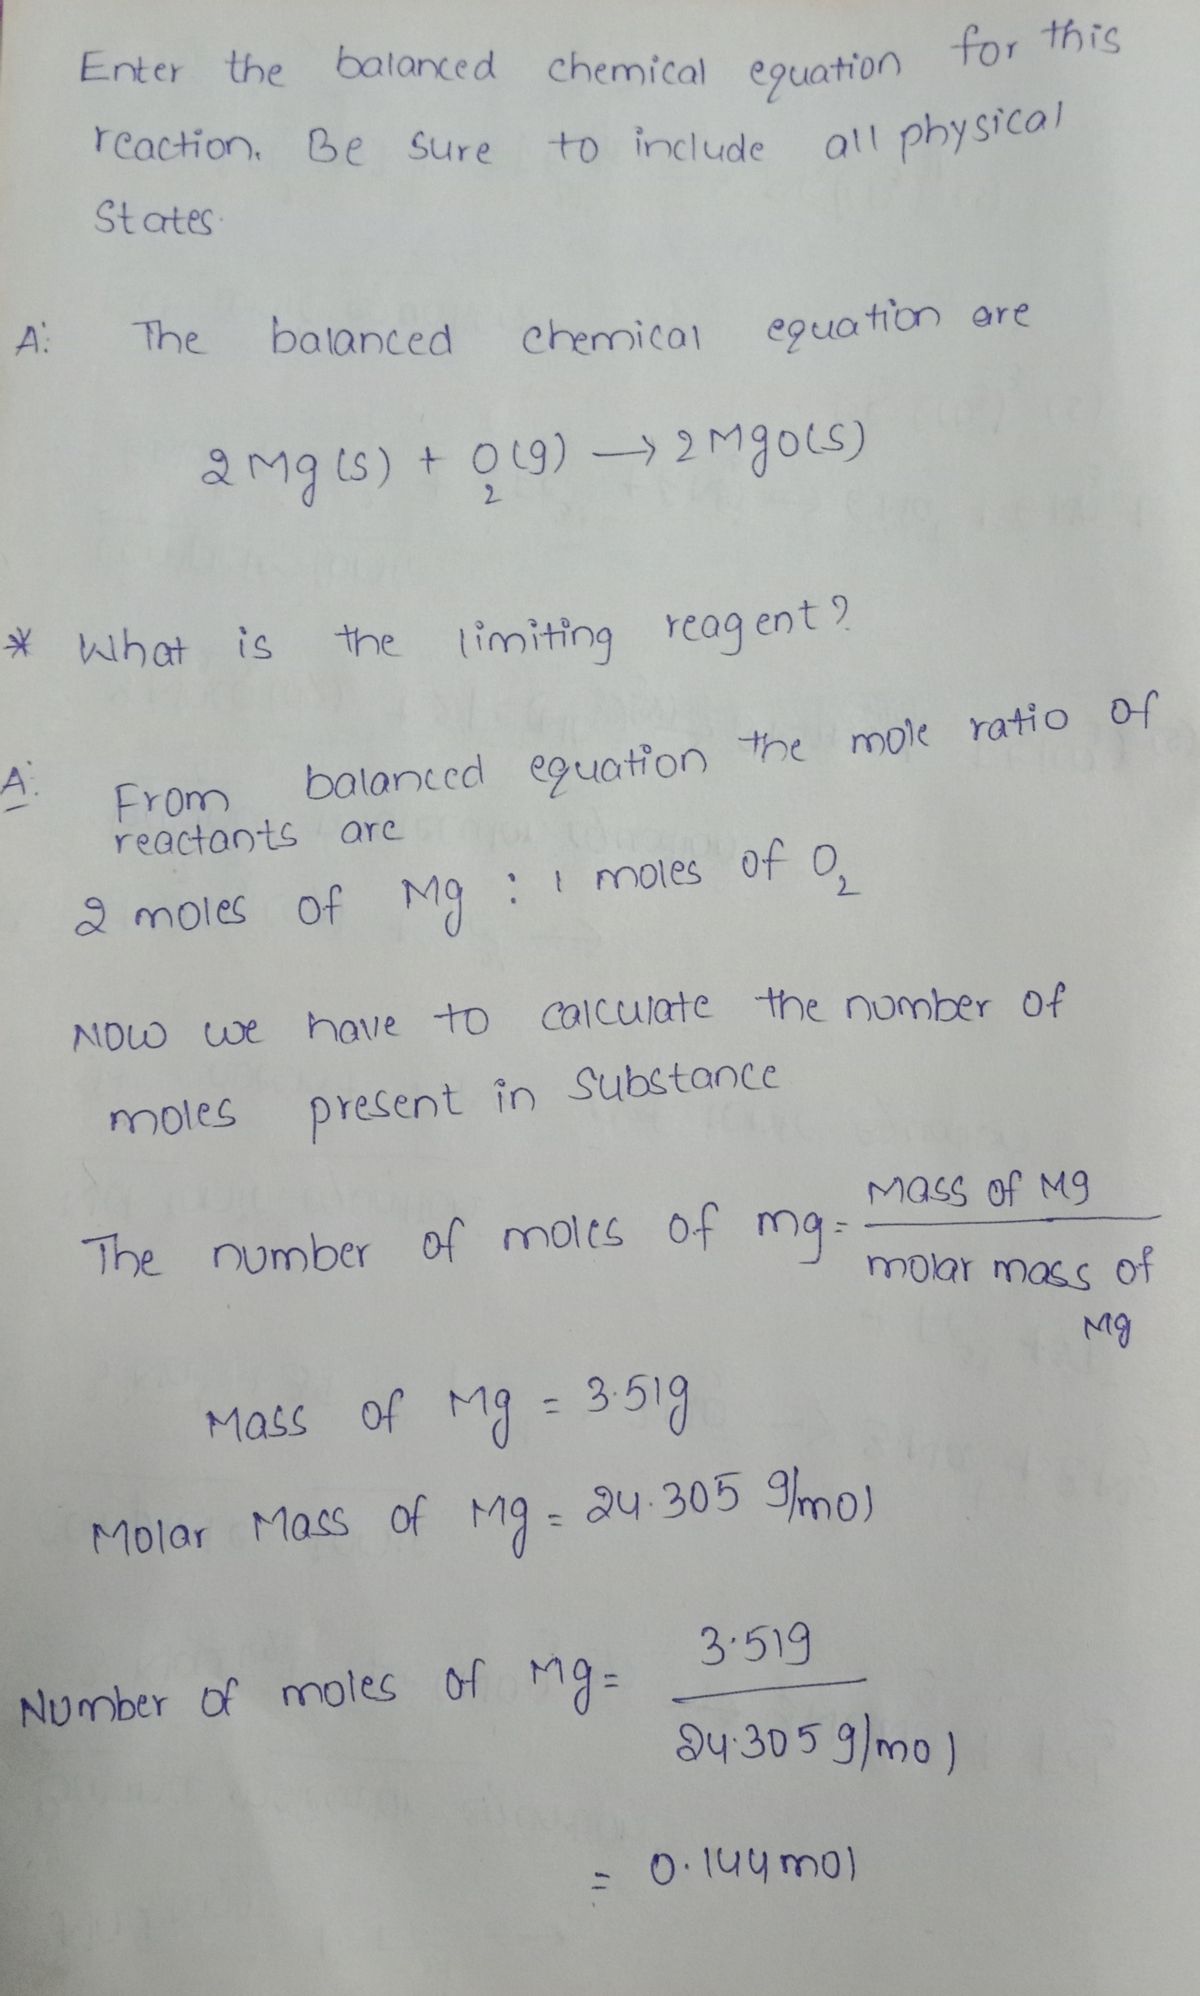 Enter the balanced chemical equation for this
reaction. Be sure to include all physical
States.
A: The balanced chemical equation are
2Mg(s) + O2(g) → 2MgO(s)
* What is the limiting reagent?
A: From balanced equation the mole ratio of
reactants are
2 moles of Mg : 1 moles of O2
Now we have to calculate the number of
moles present in substance
The number of moles of mg = Mass of Mg / molar mass of Mg
Mass of Mg = 3.51g
Molar Mass of Mg = 24.305 g/mol
Number of moles of Mg = 3.51g / 24.305 g/mol
= 0.144mol